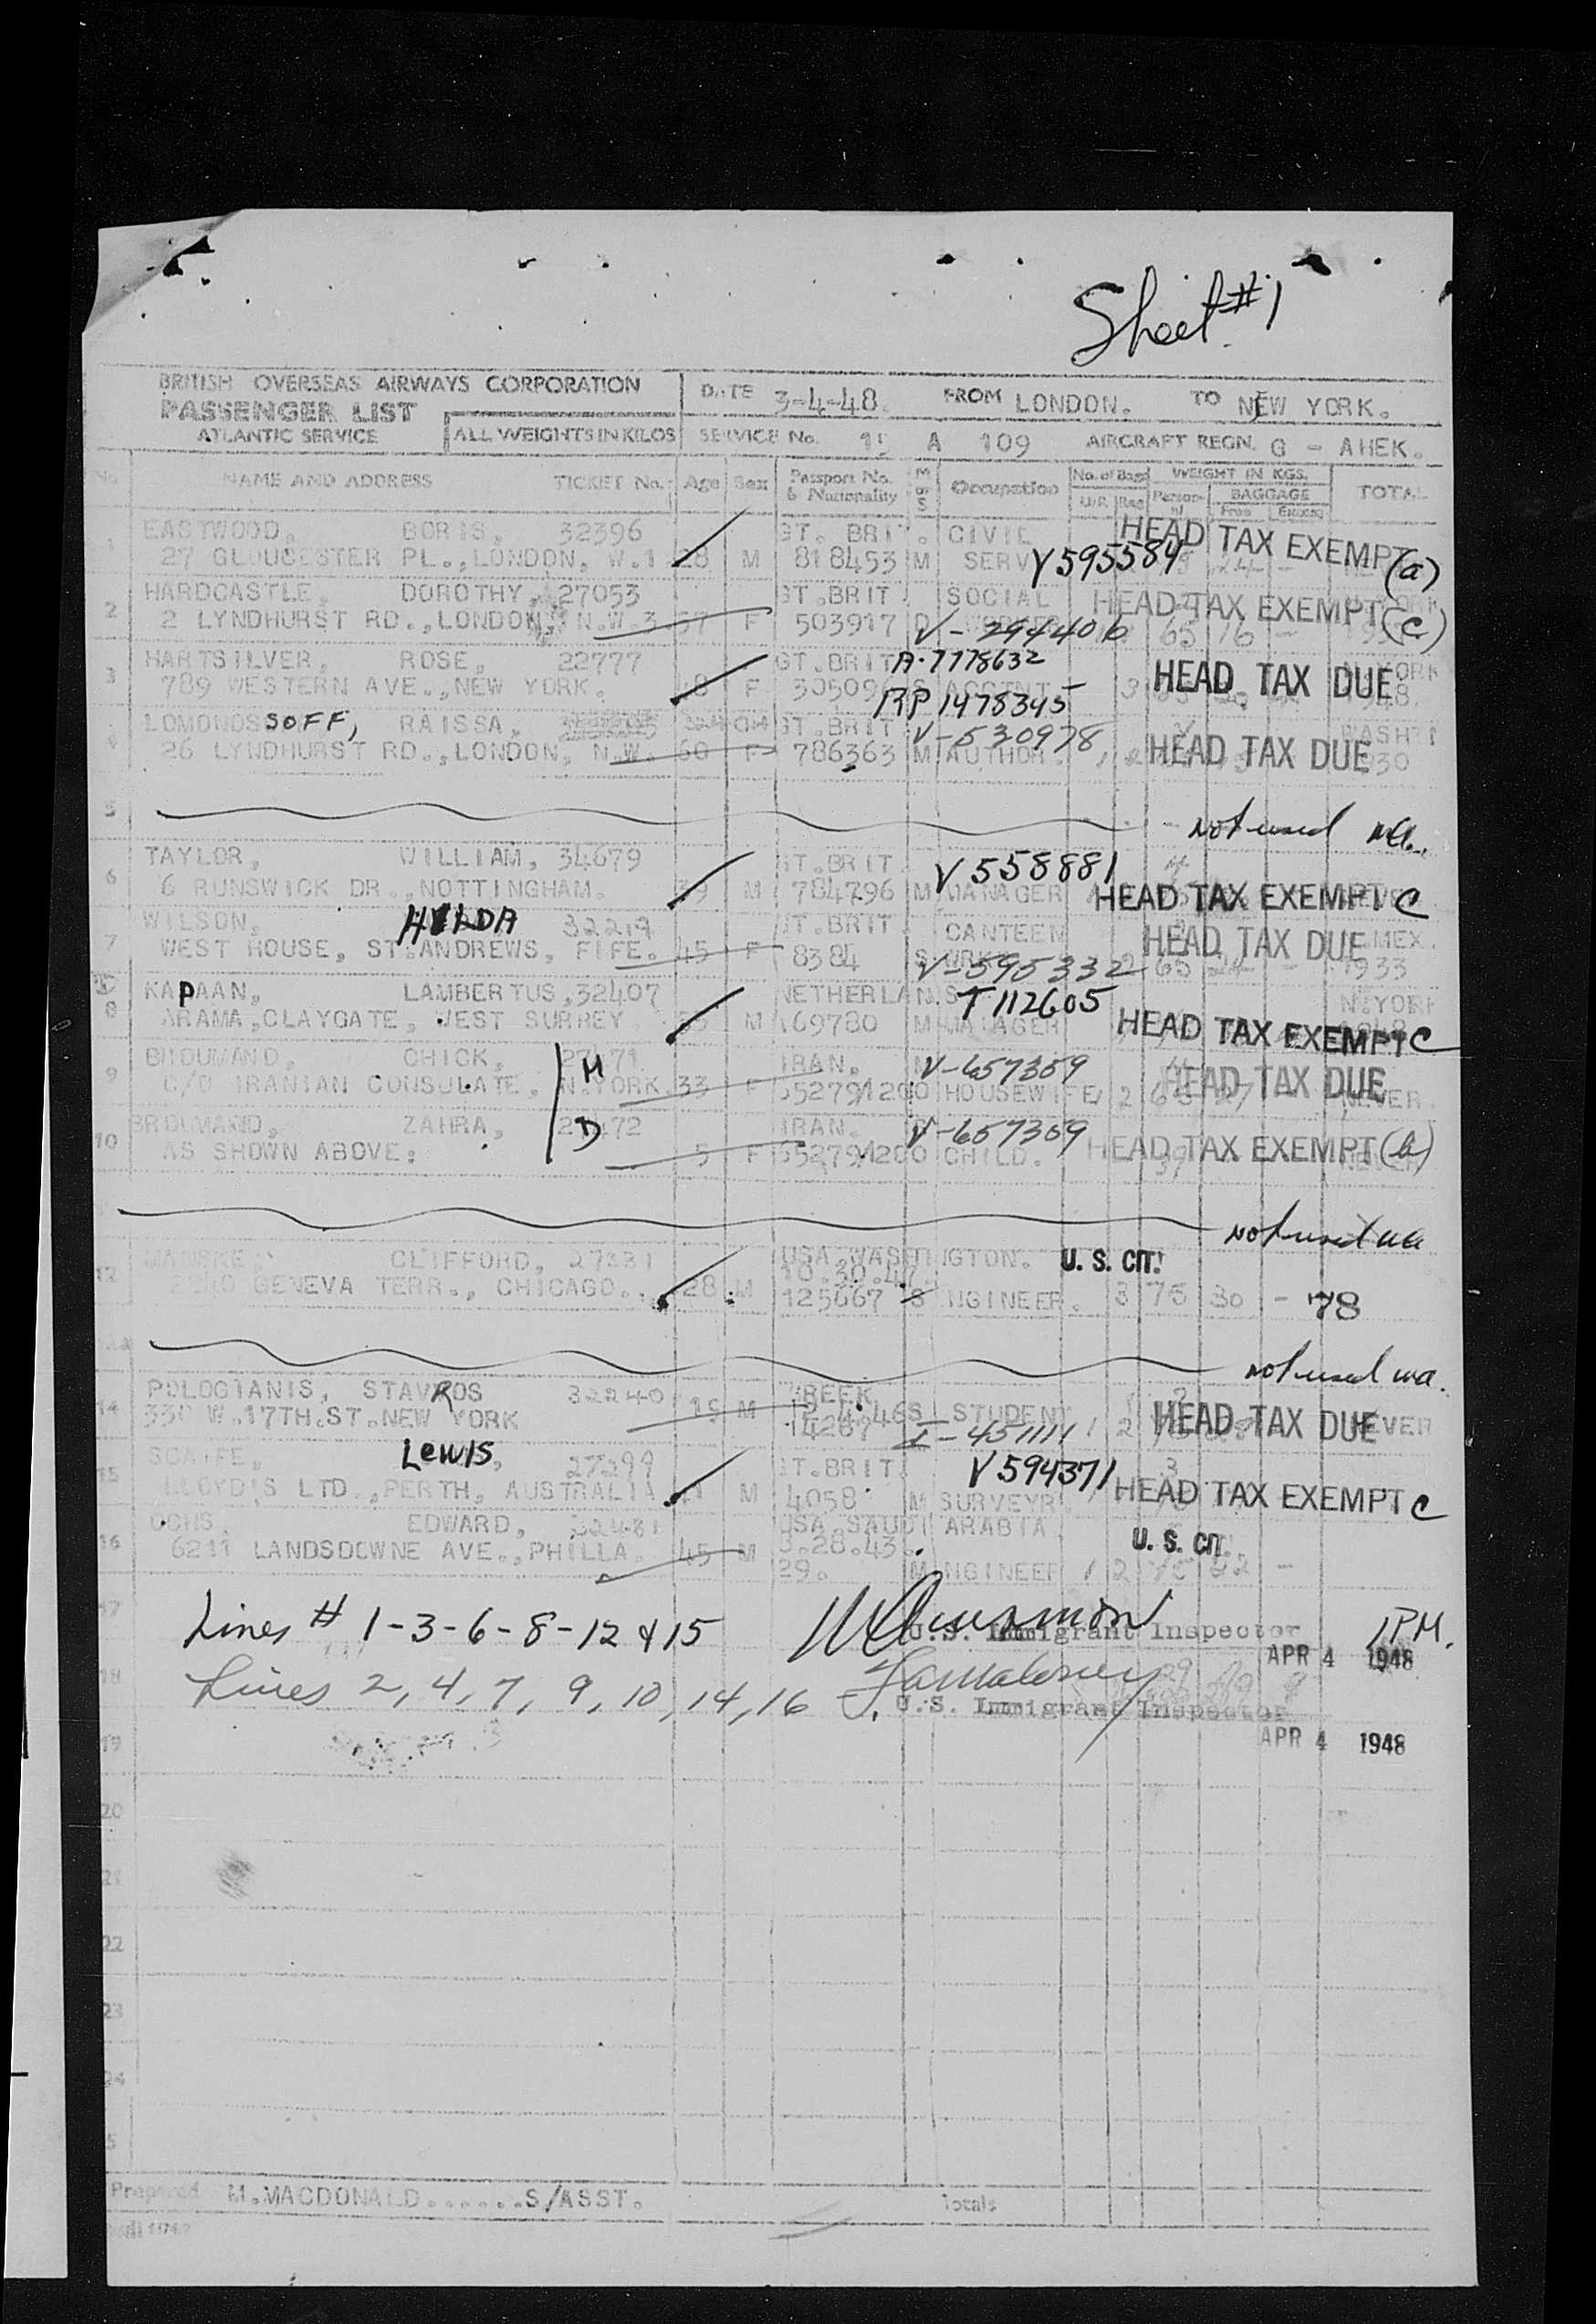 Sheet #1
BRITISH OVERSEAS AIRWAYS CORPORATION
PASSENGER LIST
ATLANTIC SERVICE
ALL WEIGHTS IN KILOS
DATE 3-4-48. FROM LONDON. TO NEW YORK.
SERVICE No. A 109 AIRCRAFT REGN. G - AHEK.
No. NAME AND ADDRESS TICKET No. Age Sex Passport No. & Nationality M or S Occupation No. of Bags U/R Reg WEIGHT IN KGS. Personal BAGGAGE Free Excess TOTAL
1 EASTWOOD, BORIS, 32396 GT. BRIT. CIVIL HEAD TAX EXEMPT (a)
27 GLOUCESTER PL., LONDON, W.1 28 M 818453 M SERV V595584
2 HARDCASTLE, DOROTHY, 27053 GT.BRIT. SOCIAL HEAD TAX EXEMPT (C)
2 LYNDHURST RD., LONDON, N.W.3. F 503917 D V-294406 65 16 -
3 HARTSILVER, ROSE, 22777 GT.BRIT A-7778632 HEAD TAX DUE
789 WESTERN AVE., NEW YORK. F RP 1478345 3 1948.
4 LOMONOSSOFF, RAISSA, GT.BRIT V-530978 HEAD TAX DUE
26 LYNDHURST RD., LONDON, N.W. 60 F 786363 M AUTHOR. 1 2 1930
5 Not used
6 TAYLOR, WILLIAM, 34679 GT.BRIT. V558881 HEAD TAX EXEMPT C
6 RUNSWICK DR., NOTTINGHAM. 39 M 784796 M MANAGER
7 WILSON, HILDA 32219 GT.BRIT. CANTEEN HEAD TAX DUE MEX.
WEST HOUSE, ST.ANDREWS, FIFE. 45 F 8384 S WRK V-595332 65 24 - 1933
8 KAPAAN, LAMBERTUS, 32407 NETHERLANDS T112605 N.YORK
ARAMA, CLAYGATE, WEST SURREY M 169780 M MANAGER HEAD TAX EXEMPT C
9 BROUMAND, CHICK, 27471 H IRAN. M V-657359 HEAD TAX DUE
C/O IRANIAN CONSULATE, N.YORK. 33 F 55279/1200 HOUSEWIFE 2 NEVER.
10 BROUMAND, ZAHRA, 27472 D IRAN. V-657359 HEAD TAX EXEMPT (b)
AS SHOWN ABOVE: 5 F 55279/1200 CHILD. NEVER
Not used
12 MANSKE CLIFFORD, 27331 USA WASHINGTON. U. S. CIT.
GENEVA TERR., CHICAGO. 28 M 10.30.47. 125667 S NGINEER. 3 75 30 - 78
Not used
14 POLOGIANIS, STAVROS 32240 19 M GREEK HEAD TAX DUE NEVER
330 W.17TH.ST.NEW YORK 14267 S STUDENT I-451111 1 2
15 SCAIFE, LEWIS, 27299 GT.BRIT. V594371 HEAD TAX EXEMPT C
LLOYD'S LTD., PERTH, AUSTRALIA M 4058 M SURVEYR.
16 OCHS, EDWARD, 32481 USA SAUDI ARABIA U. S. CIT.
6211 LANDSDOWNE AVE., PHILLA. 45 M 3.28.43. 29. M NGINEER 1 2 75 -
17 Lines # 1-3-6-8-12 & 15 U.S. Immigrant Inspector 1PM.
APR 4 1948
18 Lines 2, 4, 7, 9, 10, 14, 16 U.S. Immigrant Inspector
APR 4 1948
19
20
21
22
23
24
Prepared M.MACDONALD......S/ASST. Totals